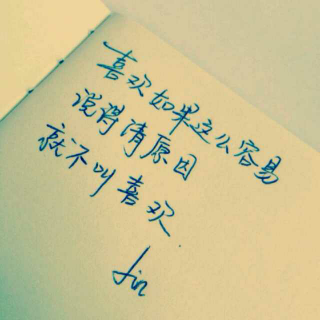 喜欢如果这么容易
说得清原因
就不叫喜欢
Jin